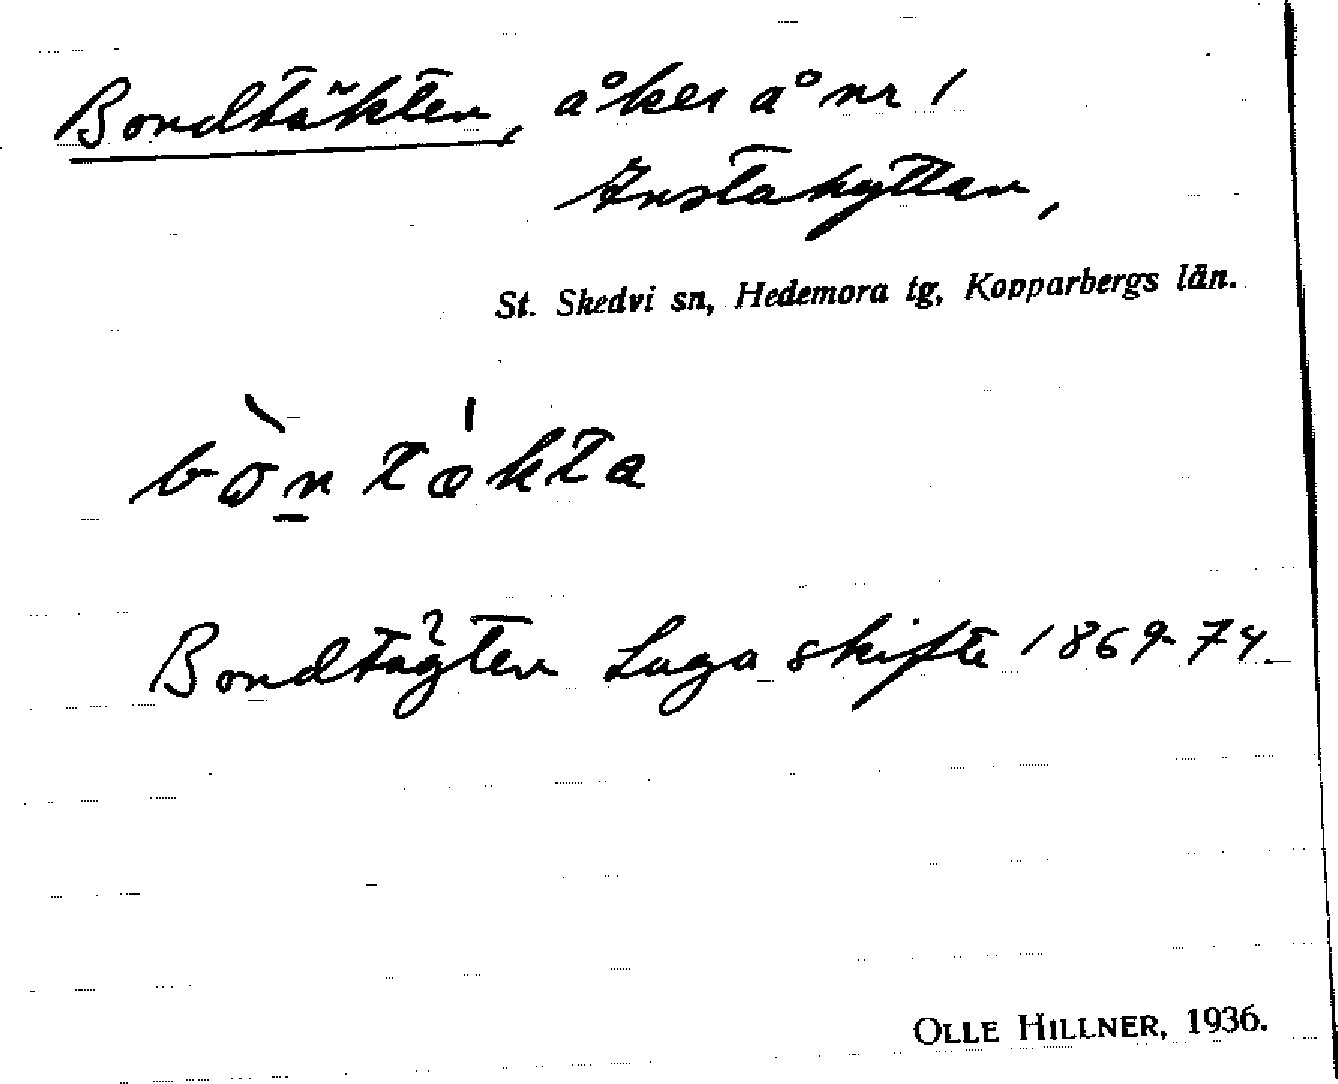 Bondtäkten, åker å nr 1
Instahyttan,
St. Skedvi sn, Hedemora tg, Kopparbergs län.
bòntǽkta
Bondtägten Laga skifte 1869-74.
OLLE HILLNER, 1936.